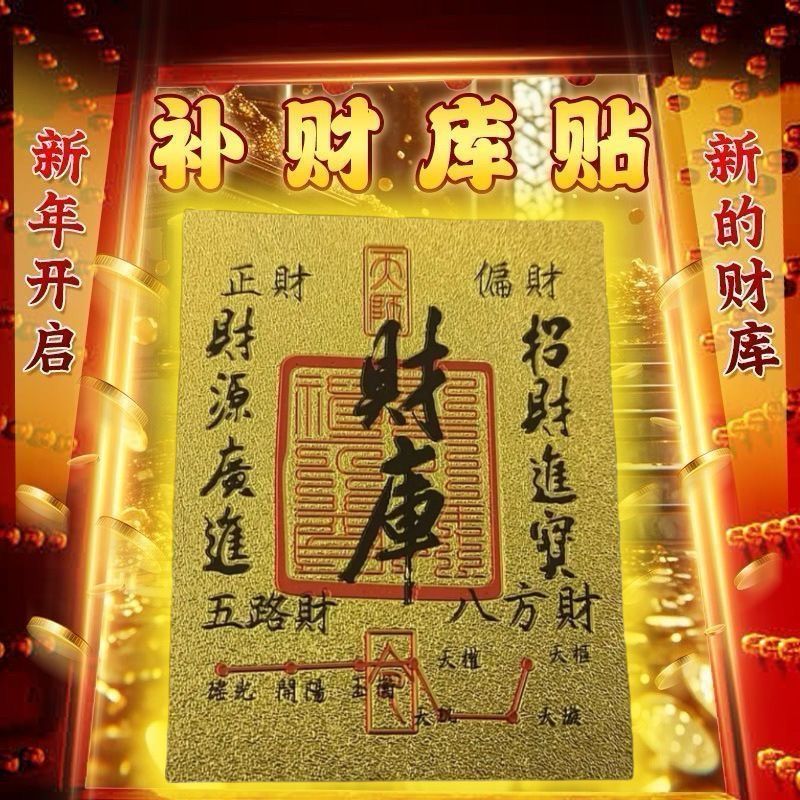 补财库贴
新年开启
新的财库
天師
正財
偏財
財庫
財源廣進
招財進寶
五路財
八方財
搖光 開陽 玉衡 天權 天樞
天璇